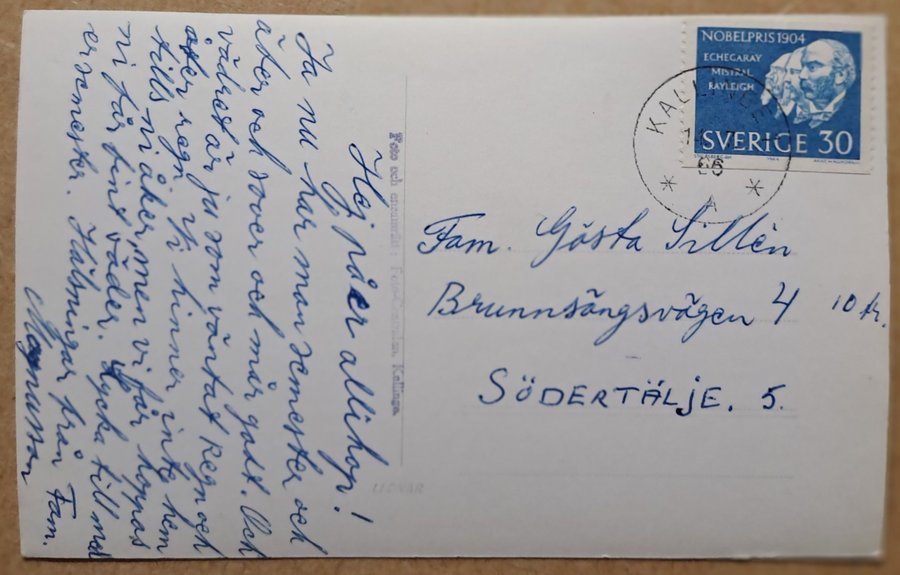 Hej på er allihop!
Ja nu har man semester och
äter och sover och mår godt. Och
vädret är ju som väntat Regn och
åter regn. Vi hinner inte hem
tills ni åker, men vi får hoppas
ni får fint väder. Lycka till med
er semester. Hälsningar från Fam.
Magnusson
Foto och ensamrätt: Kallinge.
NOBELPRIS 1904
ECHEGARAY
MISTRAL
RAYLEIGH
SVERIGE 30
KALLINGE
65
A
Fam. Gösta Sillén
Brunnsängsvägen 4
10 kr.
SÖDERTÄLJE. 5.